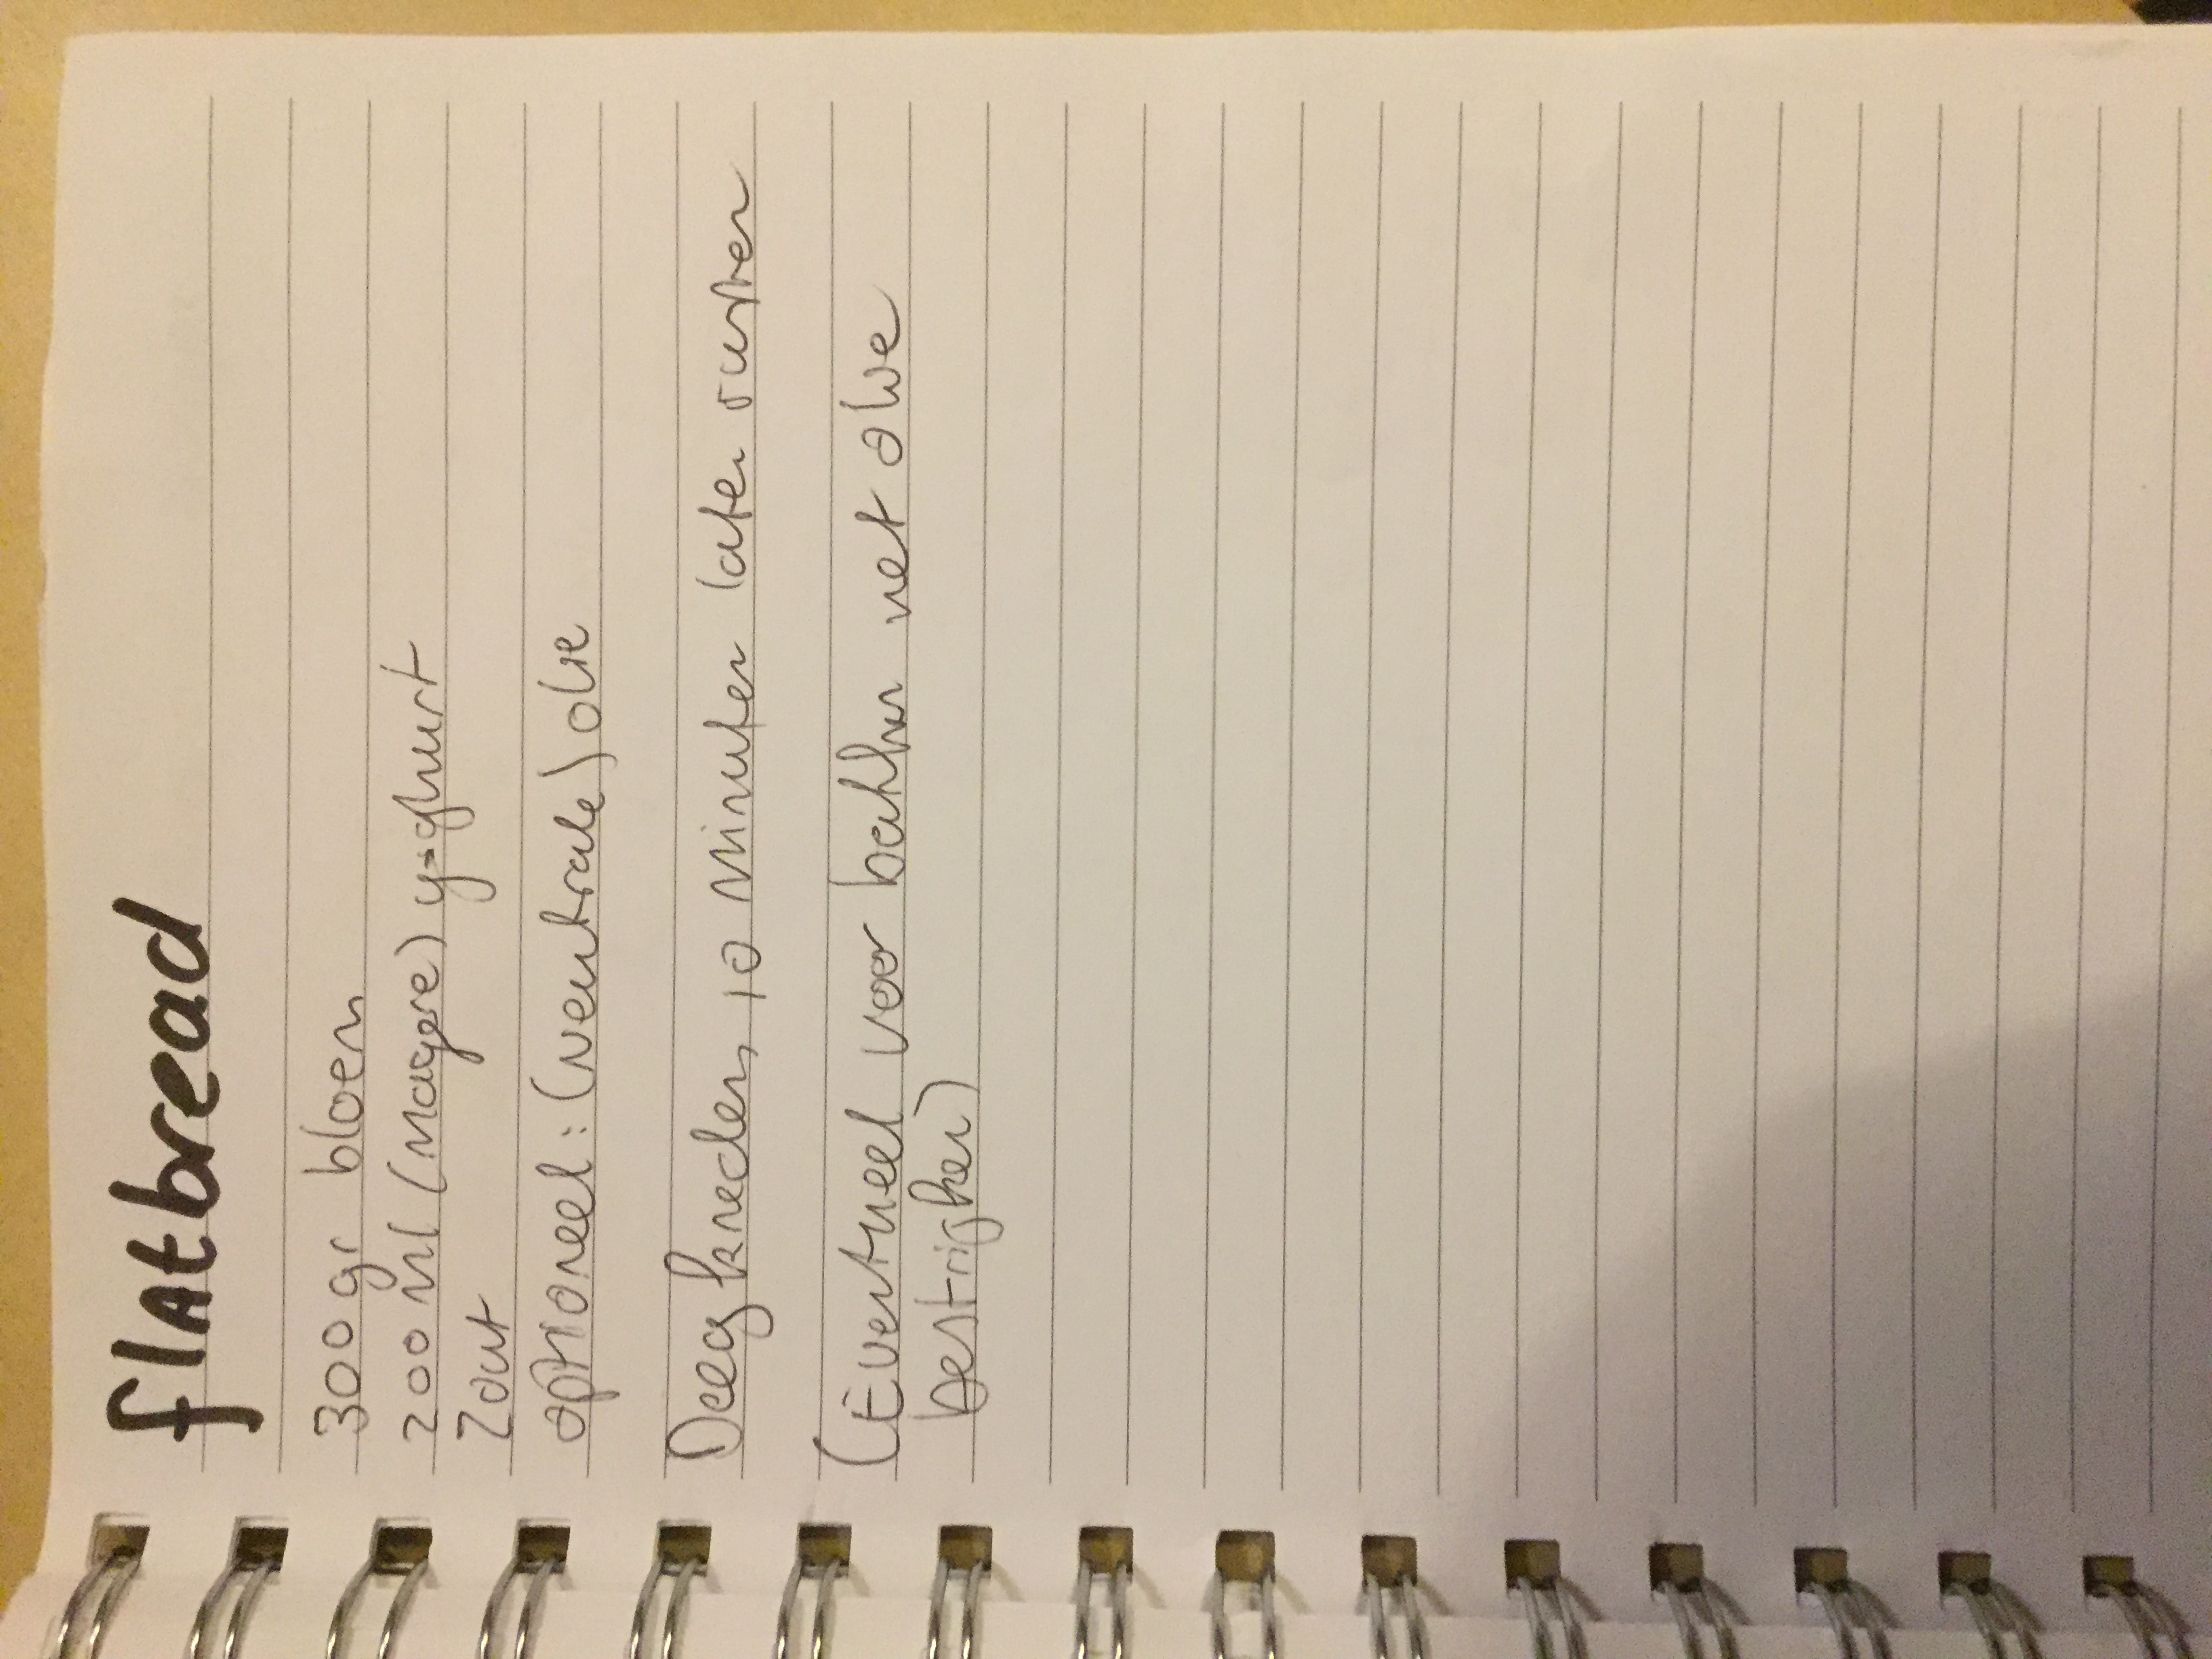 flAtbread
300 gr bloem
200 ml (magere) yoghurt
Zout
optioneel: (neutrale) olie
Deeg kneden, 10 minuten laten rusten
(Eventueel voor bakken met olie
bestrijken)